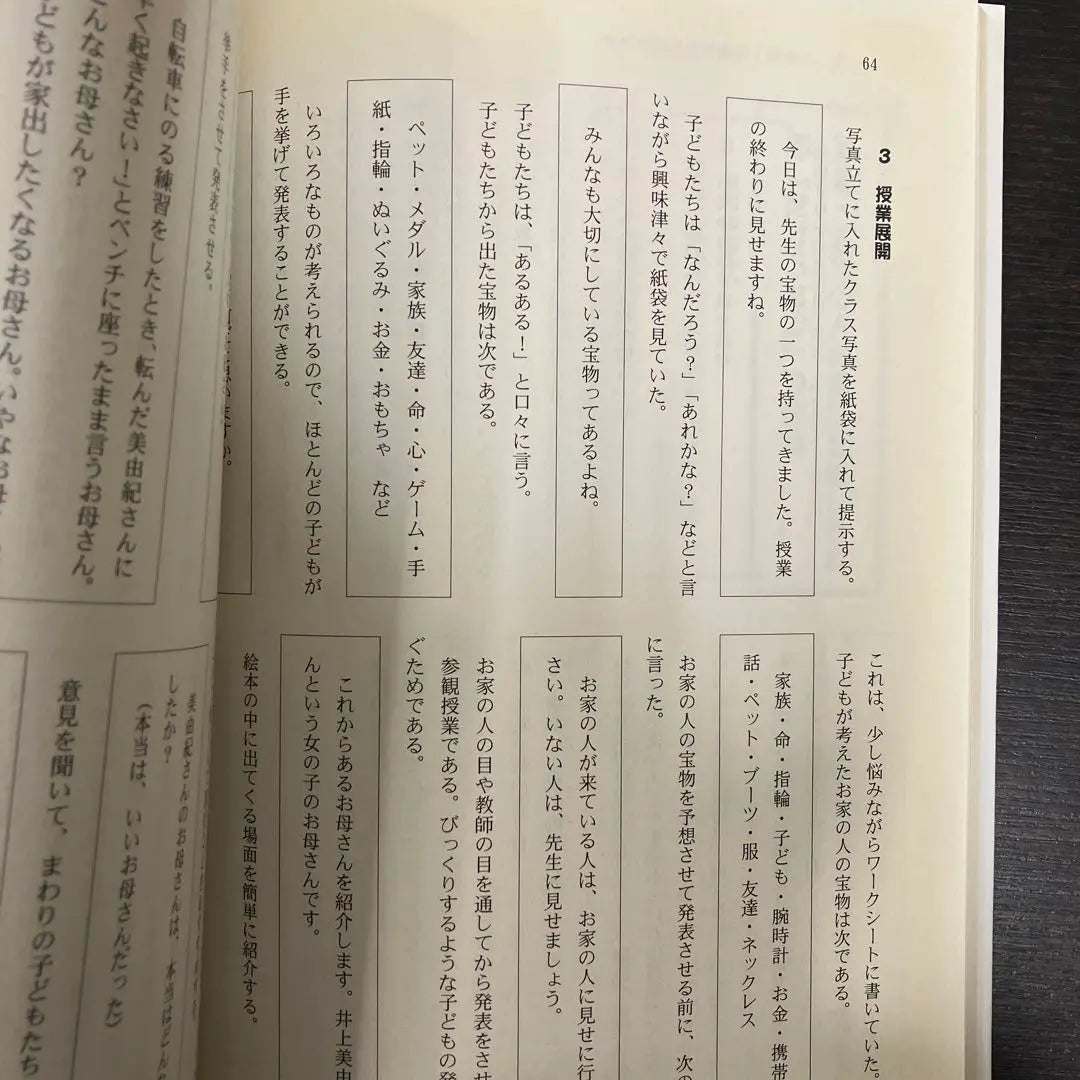 64
3 授業展開
写真立てに入れたクラス写真を紙袋に入れて提示する。
今日は、先生の宝物の一つを持ってきました。授業
の終わりに見せますね。
子どもたちは「なんだろう？」「あれかな？」などと言
いながら興味津々で紙袋を見ていた。
みんなも大切にしている宝物ってあるよね。
子どもたちは、「あるある！」と口々に言う。
子どもたちから出た宝物は次である。
ペット・メダル・家族・友達・命・心・ゲーム・手
紙・指輪・ぬいぐるみ・お金・おもちゃ など
いろいろなものが考えられるので、ほとんどの子どもが
手を挙げて発表することができる。
これは、少し悩みながらワークシートに書いていた。
子どもが考えたお家の人の宝物は次である。
家族・命・指輪・子ども・腕時計・お金・携帯
話・ペット・ブーツ・服・友達・ネックレス
お家の人の宝物を予想させて発表させる前に、次の
に言った。
お家の人が来ている人は、お家の人に見せに行
さい。いない人は、先生に見せましょう。
お家の人の目や教師の目を通してから発表をさせ
参観授業である。びっくりするような子どもの発
ぐためである。
これからあるお母さんを紹介します。井上美由
んという女の子のお母さんです。
絵本の中に出てくる場面を簡単に紹介する。
挙手をさせて発表させる。
自転車にのる練習をしたとき、転んだ美由紀さんに
く起きなさい！」とベンチに座ったまま言うお母さん。
んなお母さん？
どもが家出したくなるお母さん。いやなお母
美由紀さんのお母さんは、本当はどんな
したか？
（本当は、いいお母さんだった）
意見を聞いて、まわりの子どもたち